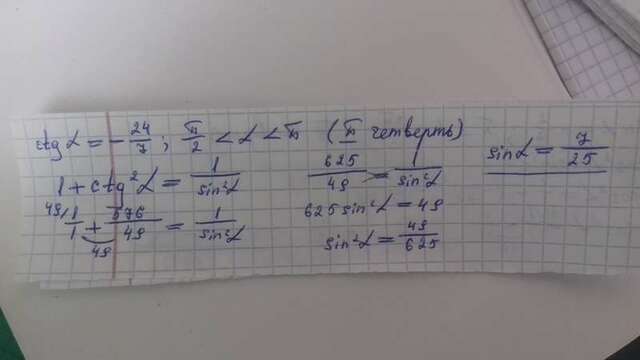 ctg α = - 24/7 ; π/2 < α < π (II четверть)
1 + ctg² α = 1/sin²α
49/ 1/1 + 576/49 = 1/sin²α
49
625/49 = 1/sin²α
625 sin²α = 49
sin²α = 49/625
sin α = 7/25